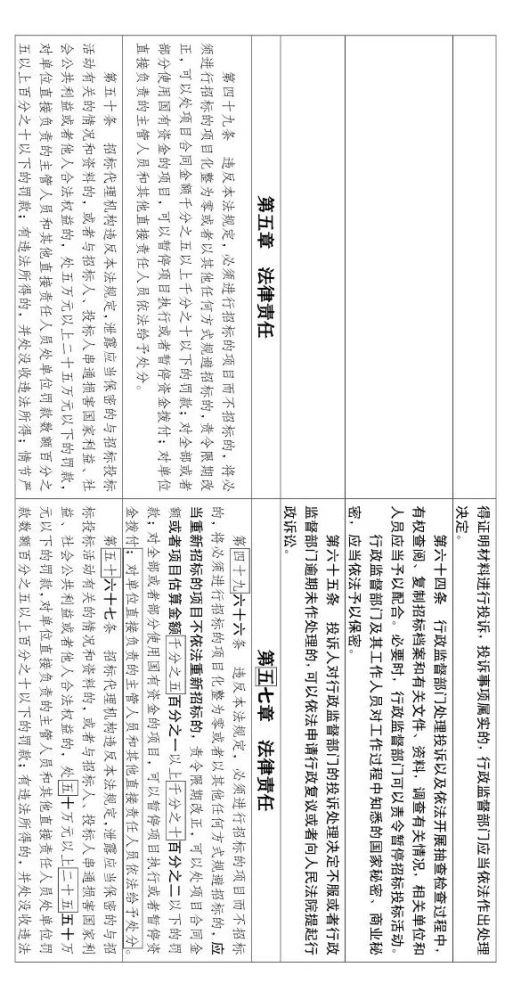 得证明材料进行投诉，投诉事项属实的，行政监督部门应当依法作出处理
决定。
第六十四条　行政监督部门处理投诉以及依法开展抽查检查过程中，
有权查阅、复制招标档案和有关文件、资料，调查有关情况，相关单位和
人员应当予以配合。必要时，行政监督部门可以责令暂停招标投标活动。
行政监督部门及其工作人员对工作过程中知悉的国家秘密、商业秘
密，应当依法予以保密。
第六十五条　投诉人对行政监督部门的投诉处理决定不服或者行政
监督部门逾期未作处理的，可以依法申请行政复议或者向人民法院提起行
政诉讼。
第五章　法律责任
第五七章　法律责任
第四十九条　违反本法规定，必须进行招标的项目而不招标的，将必
须进行招标的项目化整为零或者以其他任何方式规避招标的，责令限期改
正，可以处项目合同金额千分之五以上千分之十以下的罚款；对全部或者
部分使用国有资金的项目，可以暂停项目执行或者暂停资金拨付；对单位
直接负责的主管人员和其他直接责任人员依法给予处分。
第四十九六十六条　违反本法规定，必须进行招标的项目而不招标
的，将必须进行招标的项目化整为零或者以其他任何方式规避招标的，应
当重新招标的项目不依法重新招标的，责令限期改正，可以处项目合同金
额或者项目估算金额千分之五百分之一以上千分之十百分之二以下的罚
款；对全部或者部分使用国有资金的项目，可以暂停项目执行或者暂停资
金拨付；对单位直接负责的主管人员和其他直接责任人员依法给予处分。
第五十条　招标代理机构违反本法规定，泄露应当保密的与招标投标
活动有关的情况和资料的，或者与招标人、投标人串通损害国家利益、社
会公共利益或者他人合法权益的，处五万元以上二十五万元以下的罚款，
对单位直接负责的主管人员和其他直接责任人员处单位罚款数额百分之
五以上百分之十以下的罚款；有违法所得的，并处没收违法所得；情节严
第五十六十七条　招标代理机构违反本法规定，泄露应当保密的与招
标投标活动有关的情况和资料的，或者与招标人、投标人串通损害国家利
益、社会公共利益或者他人合法权益的，处五十万元以上二十五五十万
元以下的罚款，对单位直接负责的主管人员和其他直接责任人员处单位罚
款数额百分之五以上百分之十以下的罚款；有违法所得的，并处没收违法